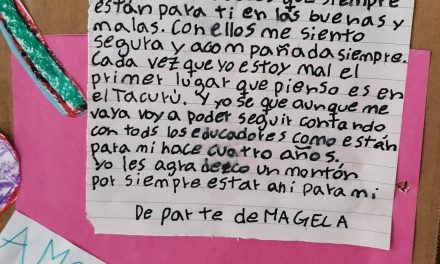 que siempre
están para ti en las buenas y
malas. Con ellos me siento
segura y acompañada siempre.
Cada vez que yo estoy mal el
primer lugar que pienso es en
el Tacurú. Y yo se que aunque me
vaya voy a poder seguir contando
con tods los educadores como están
para mi hace cuatro años,
yo les agradezco un montón
por siempre estar ahí para mi
De parte de MAGELA